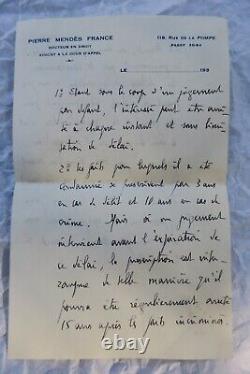 PIERRE MENDÈS FRANCE
DOCTEUR EN DROIT
AVOCAT A LA COUR D'APPEL
118, RUE DE LA POMPE
PASSY
LE 193
1° Etant sous le coup d'un jugement
par défaut, l'intéressé peut être arrêté
à chaque instant et sans limi-
tation de délai.
2° Les faits pour lesquels il a été
condamné se prescrivent par 3 ans
en cas de délit et 10 ans en cas de
crime. Mais si un jugement
intervient avant l'expiration de
ce délai, la prescription est inter-
rompue de telle manière qu'il
pourra être régulièrement arrêté
15 ans après les faits incriminés.